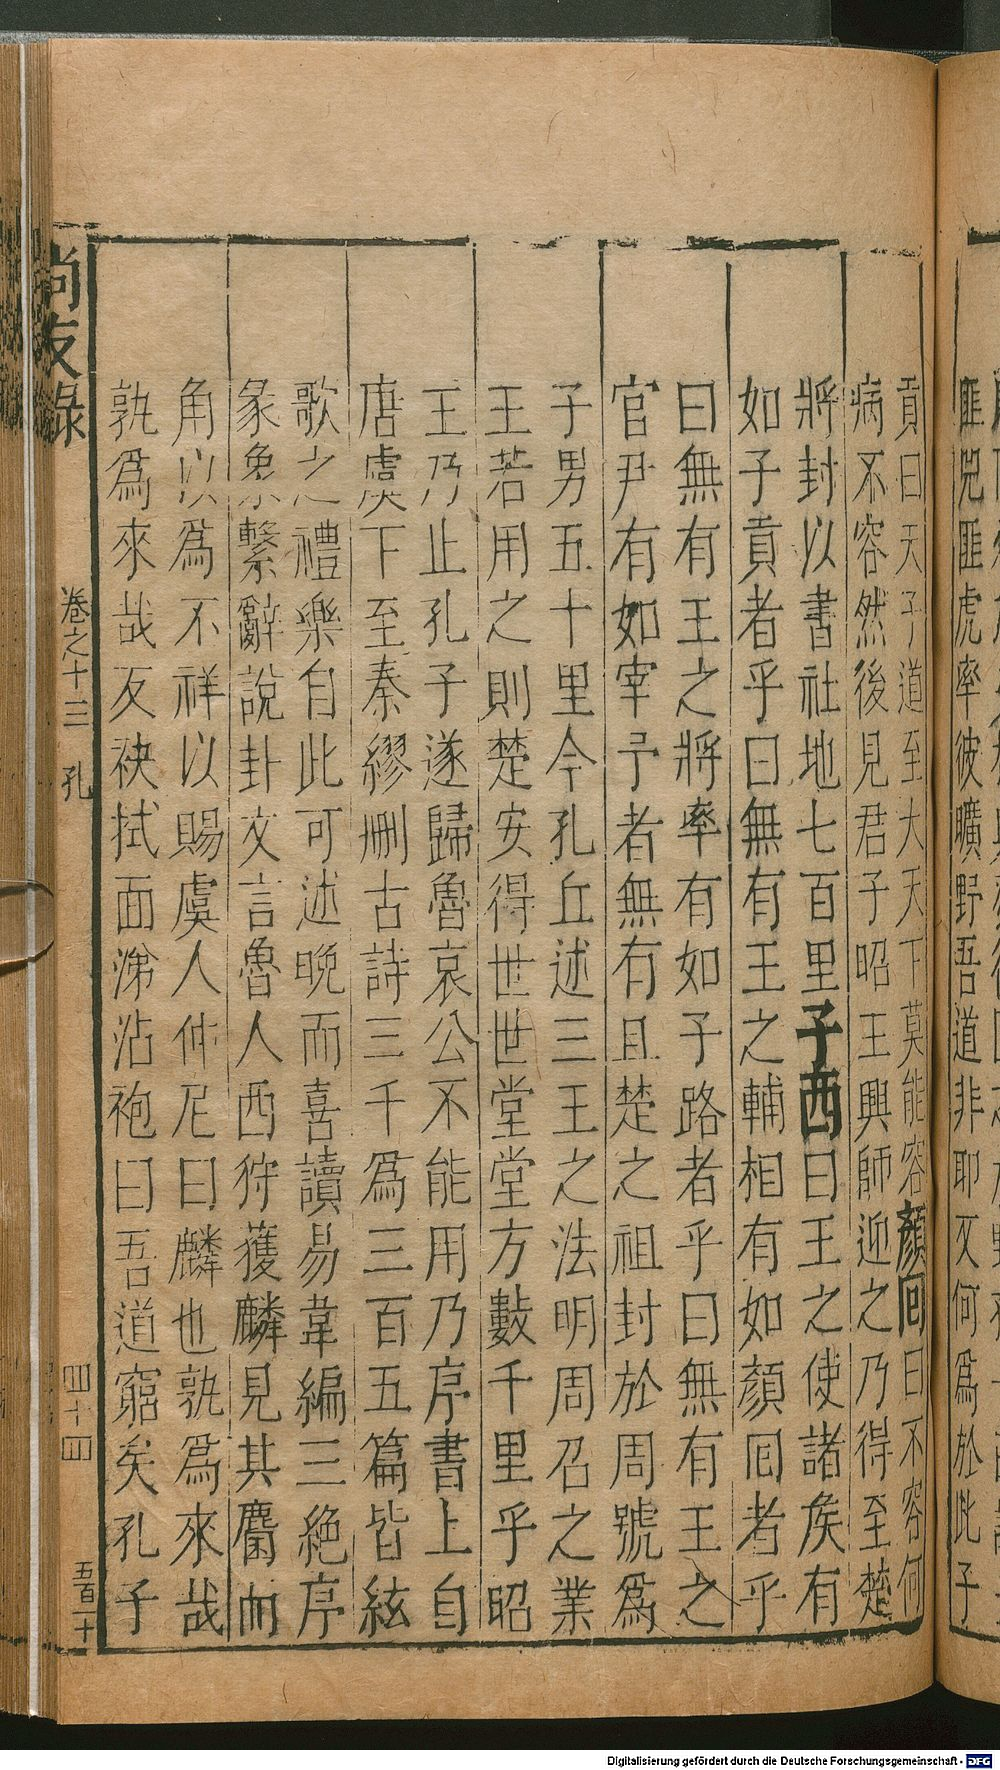 匪兕匪虎率彼曠野吾道非耶又何爲於此子
貢曰天子道至大天下莫能容顏回曰不容何
病不容然後見君子昭王興師迎之乃得至楚
將封以書社地七百里子西曰王之使諸侯有
如子貢者乎曰無有王之輔相有如顏回者乎
曰無有王之將率有如子路者乎曰無有王之
官尹有如宰予者無有且楚之祖封於周號爲
子男五十里今孔丘述三王之法明周召之業
王若用之則楚安得世世堂堂方數千里乎昭
王乃止孔子遂歸魯哀公不能用乃序書上自
唐虞下至秦繆刪古詩三千爲三百五篇皆絃
歌之禮樂自此可述晚而喜讀易韋編三絶序
彖象繫辭說卦文言魯人西狩獲麟見其麕而
角以爲不祥以賜虞人仲尼曰麟也孰爲來哉
孰爲來哉反袂拭面涕沾袍曰吾道窮矣孔子
尚友錄 卷之十三 孔 四十四 五百二十
Digitalisierung gefördert durch die Deutsche Forschungsgemeinschaft - DFG